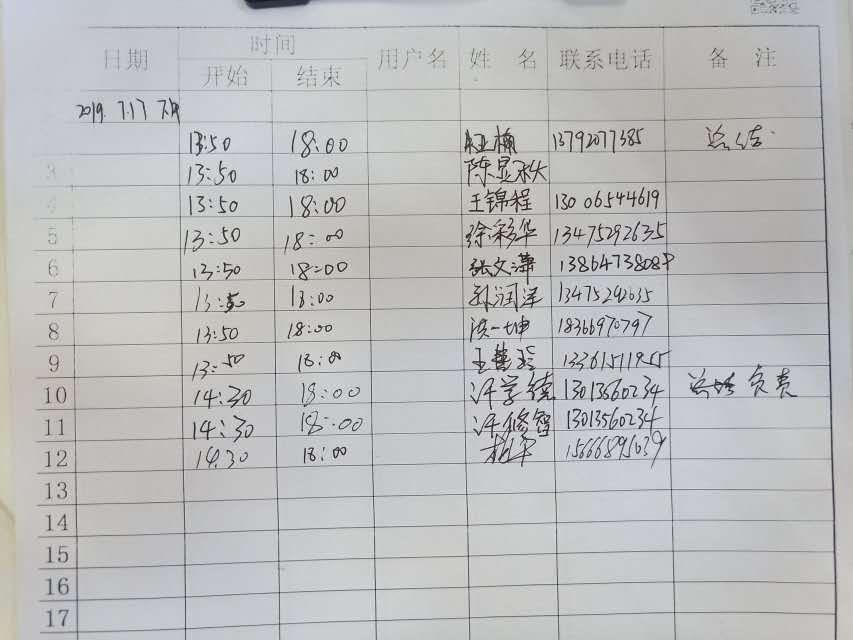 日期 时间 用户名 姓 名 联系电话 备 注
开始 结束
2019. 7.17
13:50 18:00 楠 13792077385 总结
3 13:50 18:00 陈显
4 13:50 18:00 王锦程 130 06544619
5 13:50 18:00 徐彩华 13475292635
6 13:50 18:00 张文潇
7 13:50 18:00 孙润泽 13475242635
8 13:50 18:00 洪一坤 18366970797
9 13:50 18:00 王 玲
10 14:30 18:00 许学德 13013560234 负责
11 14:30 18:00 许修智 13013560234
12 14:30 18:00 15666895039
13
14
15
16
17